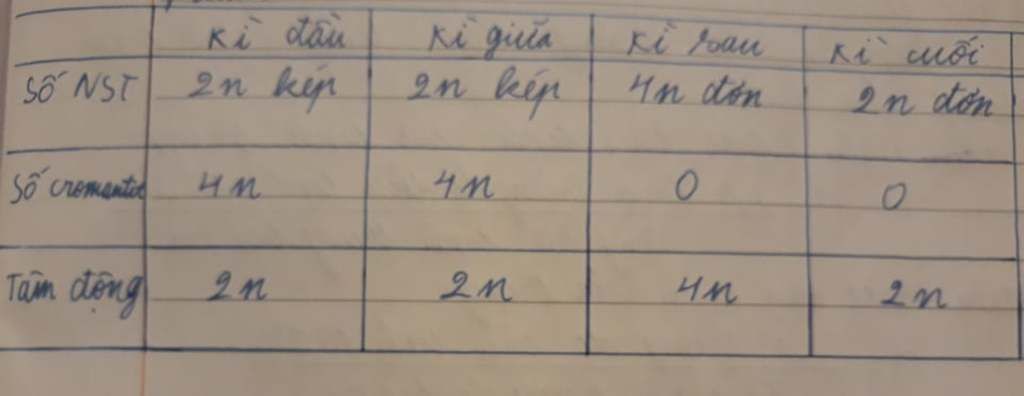 Kì đầu Kì giữa Kì sau Kì cuối
Số NST 2n kép 2n kép 4n đơn 2n đơn
Số cromantit 4n 4n 0 0
Tâm động 2n 2n 4n 2n